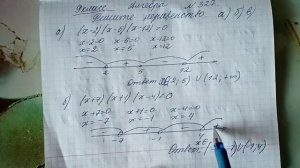 9 класс Алгебра № 327.
Решите неравенство а) б) в)
а) (x-2)(x-5)(x-12)>0
x-2=0 x-5=0 x-12=0
x=2 x=5 x=12
2 5 12
Ответ (2; 5) U (12; +∞)
б) (x+7)(x+1)(x-4)<0
x+7=0 x+1=0 x-4=0
x=-7 x=-1 x=4
-7 -1 4
Ответ x∈(-∞; -7) U (-1; 4)